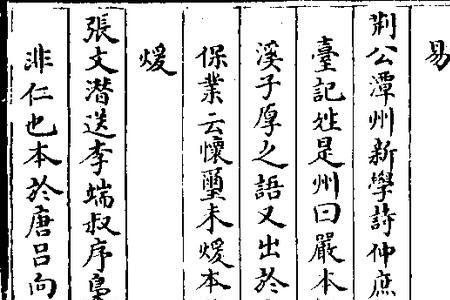 易
荆公潭州新學詩仲庶
臺記姓是州曰嚴本
溪子厚之語又出於
保業云懷璽未煖本
煖
張文潛送李端叔序梟
非仁也本於唐吕向